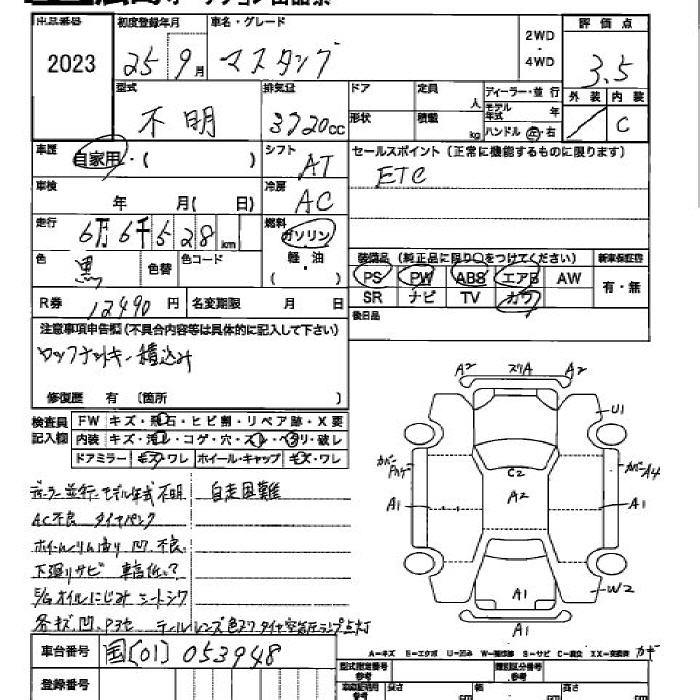 出品番号 初度登録年月 車名・グレード 2WD・4WD 評価点
2023 25年 9月 マスタング 3.5
型式 不明 排気量 3720cc ドア 定員 人 ディーラー・並行 外装 内装
形状 積載 kg モデル年式 年 ハンドル 左・右 C
車歴 自家用・( ) シフト AT セールスポイント(正常に機能するものに限ります)
ETC
車検 年 月 ( 日) 冷房 AC
走行 6万6千528km 燃料 ガソリン
色 黒 色替 色コード 軽・油
( )
装備品(純正品に限り○をつけてください) 新車保証書
PS PW ABS エアB AW 有・無
SR ナビ TV カワ
R券 12490円 名変期限 月 日 後日品
注意事項申告欄(不具合内容等は具体的に記入して下さい)
ロックナットキー積込み
修復歴 有 〔箇所 〕
検査員記入欄 FW キズ・飛石・ヒビ割・リペア跡・X要
内装 キズ・汚レ・コゲ・穴・スレ・ヘタリ・破レ
ドアミラー キズ・ワレ ホイール・キャップ キズ・ワレ
A2 スリA A2
U1
カバー カバーA4
C2
A2
A1 A1
A1 W2
A1
ディーラー並行・モデル年式不明 自走困難
AC不良 タイヤパンク
下廻りサビ 車高低い?
E/Gオイルにじみ シートシワ
各キズ凹、アセ テールレンズ色アリ タイヤ空気圧ランプ点灯
車台番号 国[01]053948
A-キズ E-エクボ U-凹み S-サビ C-腐食 XX-交換済
登録番号 型式指定番号 参考 類別区分番号 参考
長さ 幅 高さ